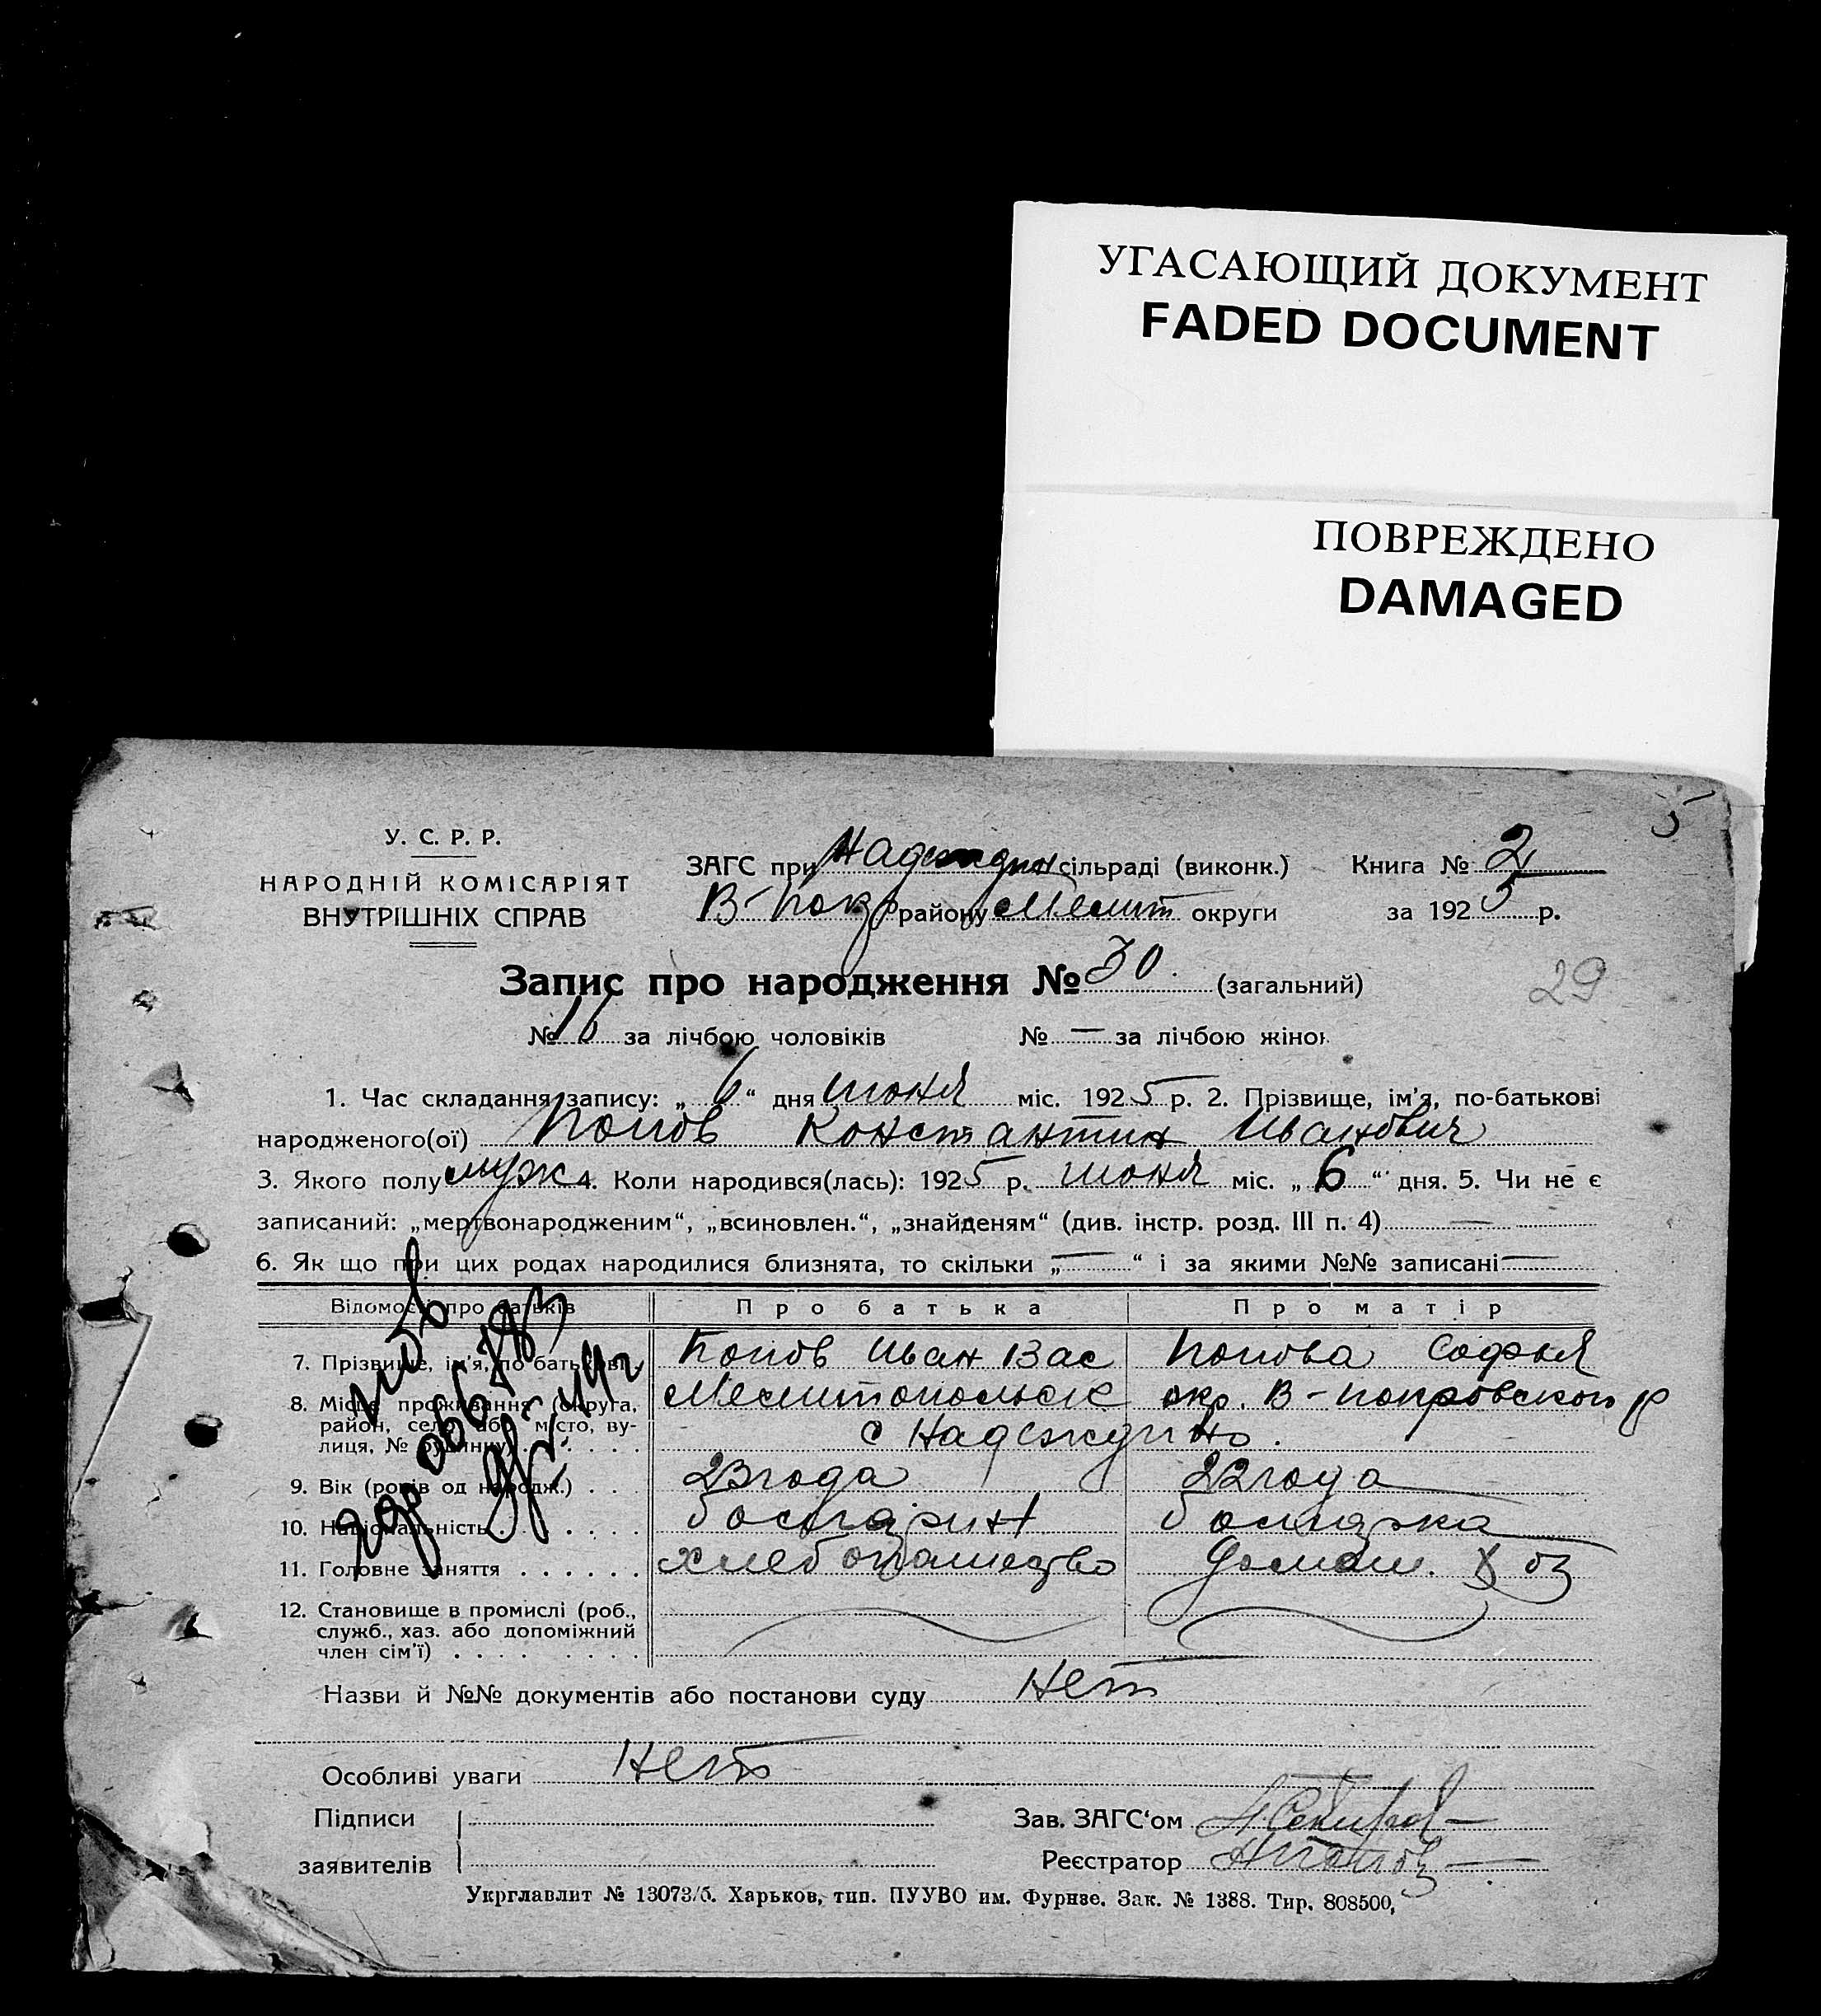 УГАСАЮЩИЙ ДОКУМЕНТ
FADED DOCUMENT
ПОВРЕЖДЕНО
DAMAGED
5
У. С. Р. Р.
НАРОДНІЙ КОМІСАРІЯТ
ВНУТРІШНІХ СПРАВ
ЗАГС при Надеждин сільраді (виконк.) Книга № 2
В-Покр району Мелит округи за 1925 р.
Запис про народження № 30. (загальний)
29
№ 16 за лічбою чоловіків № — за лічбою жінок
1. Час складання запису: „ 6 “ дня июня міс. 1925 р. 2. Прізвище, ім'я, по-батькові
народженого(ої) Попов Константин Иванович
3. Якого полу муж 4. Коли народився(лась): 1925 р. июня міс. „ 6 “ дня. 5. Чи не є
записаний: „мертвонародженим“, „всиновлен.“, „знайденям“ (див. інстр. розд. III п. 4) —
6. Як що при цих родах народилися близнята, то скільки „ — “ і за якими №№ записані —
Відомості про батьків Про батька Про матір
7. Прізвище, ім'я, по батькові . Попов Иван Вас Попова Софья
8. Місце проживання (округа, район, село або місто, вулиця, № будинку) . . . . . Мелитопольск окр. В-Покровского р
с Надеждино.
9. Вік (років од народж.) . . . 23 года 22 года
10. Національність . . . . . болгарин болгарка
11. Головне заняття . . . . . . хлебопашество домаш. хоз
12. Становище в промислі (роб.,
служб., хаз. або допоміжний
член сім'ї) . . . . . . . .
Назви й №№ документів або постанови суду Нет
Особливі уваги Нет
Підписи
заявителів
Зав. ЗАГС‘ом
Реєстратор НПопов
Укрглавлит № 13073/б. Харьков, тип. ПУУВО им. Фрунзе. Зак. № 1388. Тир. 808500,